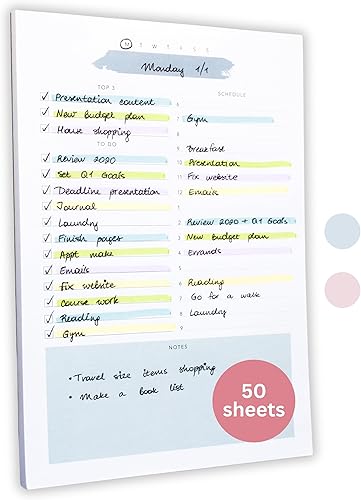 M T W T F S S
Monday 1/1
TOP 3
✓ Presentation content
✓ New Budget plan
✓ House shopping
TO DO
✓ Review 2020
✓ Set Q1 Goals
✓ Deadline presentation
✓ Journal
✓ Laundry
✓ Finish pages
✓ Appt make
✓ Emails
✓ fix website
✓ Course work
✓ Reading
✓ Gym
SCHEDULE
6
7 Gym
8
9 Breakfast
10 Presentation
11 Fix website
12 Emails
1
2 Review 2020 + Q1 Goals
3 New Budget plan
4 Errands
5
6 Reading
7 Go for a walk
8 Laundry
9
NOTES
• Travel size items shopping
• Make a book list
50
sheets